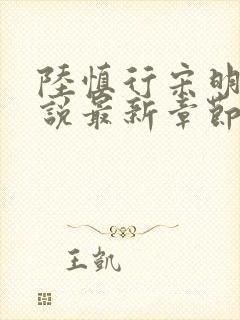 陸慎行宋明
說最新章節
王凱